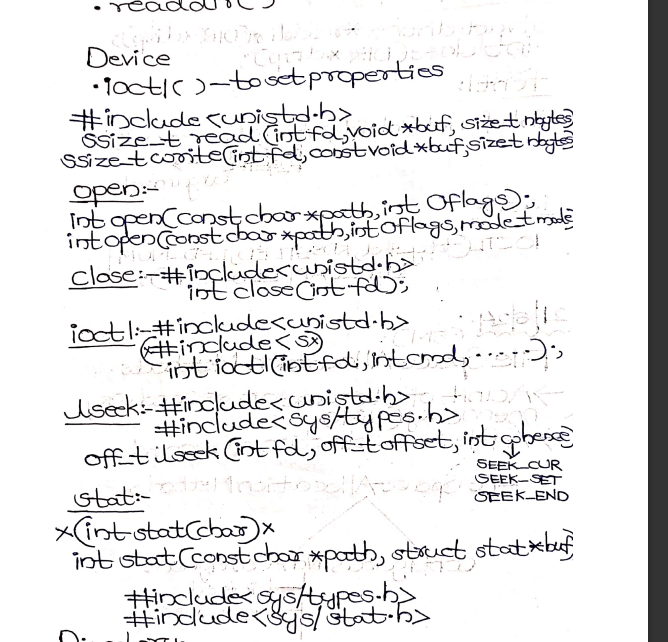 • readdir( )
Device
• ioctl( ) – to set properties
#include <unistd.h>
ssize_t read (int fd, void *buf, size_t nbytes)
ssize_t write (int fd, const void *buf, size_t nbytes)
open:-
int open(const char *path, int Oflags);
int open(const char *path, int Oflags, mode_t mode)
close:- #include<unistd.h>
int close(int fd);
ioctl:- #include<unistd.h>
(x#include < sx)
int ioctl(int fd, int cmd, ......);
lseek:- #include<unistd.h>
#include<sys/types.h>
off_t lseek (int fd, off_t offset, int whence)
SEEK_CUR
SEEK_SET
SEEK_END
stat:-
x(int stat(char)x
int stat(const char *path, struct stat *buf)
#include<sys/types.h>
#include<sys/stat.h>